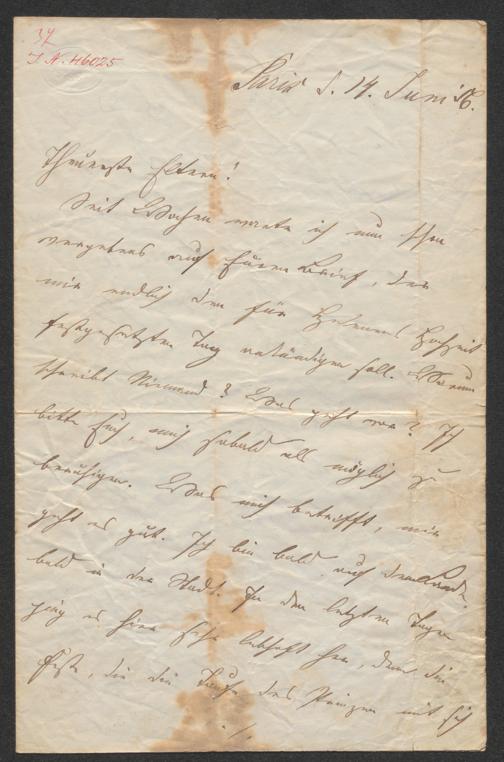 37
I. N. 46025
Paris d. 14. Juni 56.
Theuerste Eltern!
Seit Wochen warte ich nun schon
vergebens auf Euren Brief, der
mir endlich den für Helenens Hochzeit
festgesetzten Tag ankündigen soll. Warum
schreibt Niemand? Was geht vor? Ich
bitte Euch, mich sobald als möglich zu
beruhigen. Was mich betrifft, mir
geht es gut. Ich bin bald auf dem Lande,
bald in der Stadt. In den letzten Tagen
ging es hier sehr lebhaft her, denn die
Feste, die die Taufe des Prinzen mit sich
./.